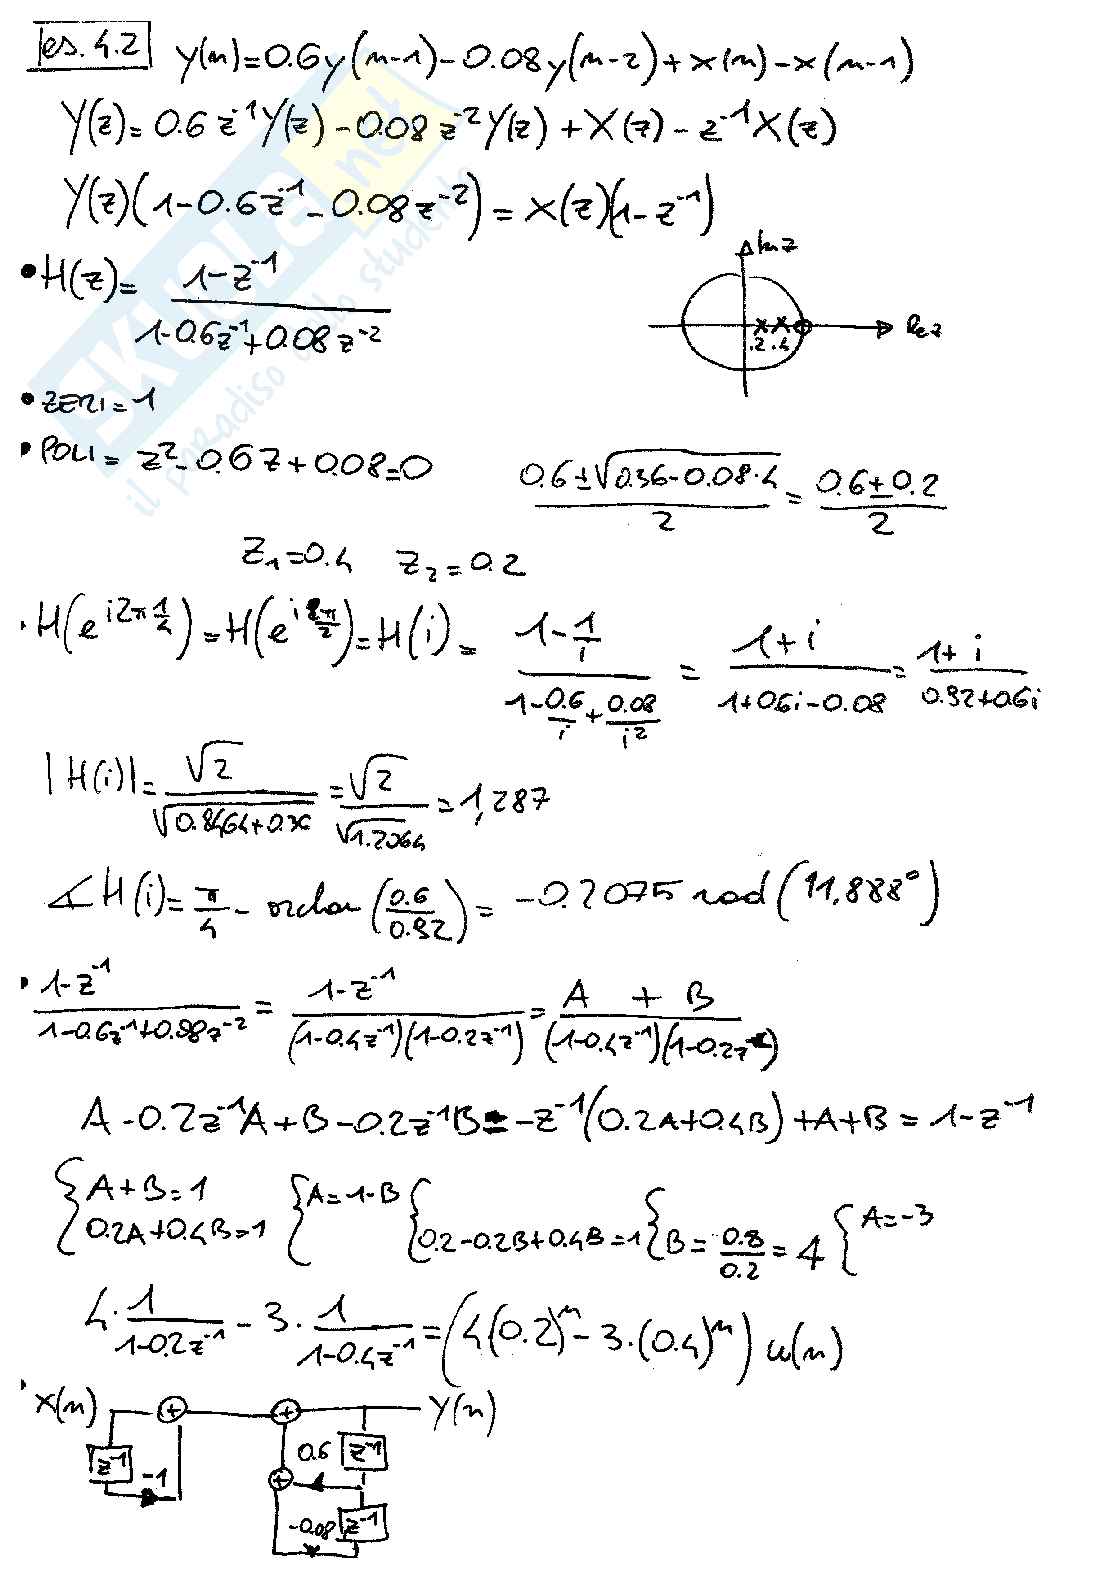 es. 4.2 y(n)=0.6y(n-1)-0.08y(n-2)+x(n)-x(n-1)
Y(z)=0.6z⁻¹Y(z)-0.08z⁻²Y(z)+X(z)-z⁻¹X(z)
Y(z)(1-0.6z⁻¹-0.08z⁻²)=X(z)(1-z⁻¹)
Im z
• H(z)= (1-z⁻¹)/(1-0.6z⁻¹+0.08z⁻²)
Re z
.2 .4
• ZERI=1
• POLI= z²-0.6z+0.08=0 (0.6±√(0.36-0.08·4))/2 = (0.6±0.2)/2
z₁=0.4 z₂=0.2
• H(e^{i2π 1/4})=H(e^{i π/2})=H(i)= (1-1/i)/(1-0.6/i+0.08/i²) = (1+i)/(1+0.6i-0.08) = (1+i)/(0.92+0.6i)
|H(i)|= √2/√(0.8464+0.36) = √2/√1.2064 = 1,287
∡H(i)= π/4 - arctan(0.6/0.92) = -0.2075 rad (11,888°)
• (1-z⁻¹)/(1-0.6z⁻¹+0.08z⁻²) = (1-z⁻¹)/((1-0.4z⁻¹)(1-0.2z⁻¹)) = A/(1-0.4z⁻¹) + B/(1-0.2z⁻¹)
A-0.2z⁻¹A+B-0.2z⁻¹B=-z⁻¹(0.2A+0.4B)+A+B=1-z⁻¹
{A+B=1 {A=1-B { { {A=-3
0.2A+0.4B=1 0.2-0.2B+0.4B=1 B= 0.8/0.2 = 4
4· 1/(1-0.2z⁻¹) - 3· 1/(1-0.4z⁻¹) = (4(0.2)ⁿ-3·(0.4)ⁿ)u(n)
• x(n) + + y(n)
z⁻¹ -1 0.6 z⁻¹
+
-0.08 z⁻¹
SKUOLA.net
il paradiso dello studente